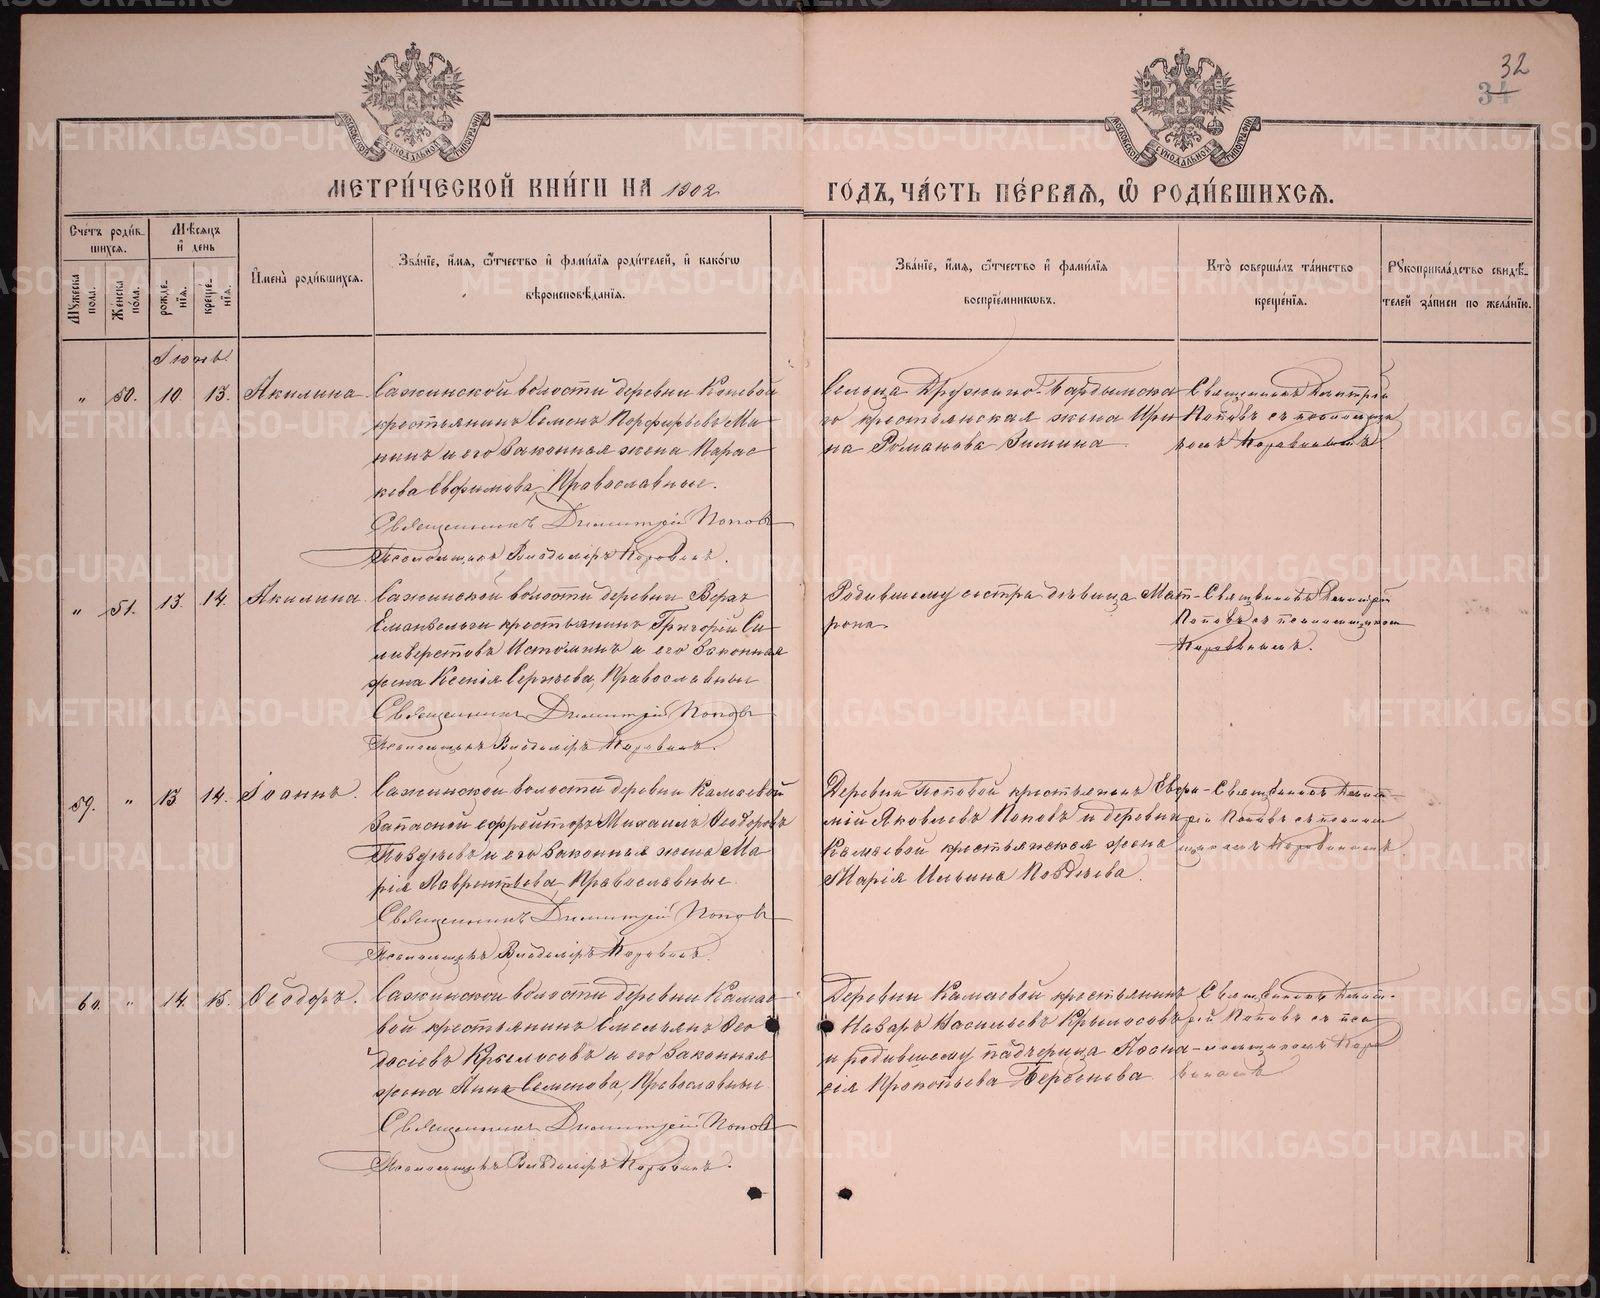 32
34
МЕТРИ́ЧЕСКОЙ КНИ́ГИ НА 1902
ГО́ДЪ, ЧА́СТЬ ПЕ́РВАЯ, Ѡ РОДИ́ВШИХСЯ.
Счетъ роди́вшихся.
Му́жеска по́ла.
Же́нска по́ла.
Мѣ́сяцъ и҆ день
рожде́нїя.
креще́нїя.
И҆мена̀ роди́вшихся.
Зва́нїе, и҆́мя, ѻ҆́тчество и҆ фами́лїя роди́телей, и҆ како́гѡ
вѣроисповѣ́данїя.
Зва́нїе, и҆́мя, ѻ҆́тчество и҆ фами́лїя
воспрїе́мникѡвъ.
Кто̀ соверша́лъ та́инство
креще́нїя.
Рꙋкоприкла́дство свидѣ́телей за́писи по жела́нїю.
Іюнь
„ 50. 10. 13. Акилина.
Сажинской волости деревни Коневой
крестьянинъ Семенъ Порфирьевъ Ми-
нинъ и его законная жена Парас-
кева Евфимова, Православные.
Священникъ Димитрій Поповъ
Псаломщикъ Владиміръ Коровинъ.
Сельца Дружино-Бардымска-
го крестьянская жена Ири-
на Романова Зимина
Священникъ Димитрій
Поповъ съ псаломщи-
комъ Коровинымъ
„ 51. 13. 14. Акилина.
Сажинской волости деревни Верхъ
крестьянинъ Григорій Си-
ливерстовъ Истоминъ и его законная
жена Ксенія Сергіева, Православные
Священникъ Димитрій Поповъ
Псаломщикъ Владиміръ Коровинъ.
Родившему сестра дѣвица Мат-
рона.
Священникъ Димитрій
Поповъ съ псаломщикомъ
Коровинымъ.
59. „ 13 14. Іоаннъ.
Сажинской волости деревни Камаевой
запасной ефрейторъ Михаилъ Ѳеодоровъ
Поздѣевъ и его законная жена Ма-
рія Лаврентьева, Православные.
Священникъ Димитрій Поповъ
Псаломщикъ Владиміръ Коровинъ.
Деревни Поповой крестьянинъ Евфи-
мій Яковлевъ Поповъ и деревни
Камаевой крестьянская жена
Марія Ильина Поздѣева.
Священникъ Димит-
рій Поповъ съ псалом-
щикомъ Коровинымъ
60. „ 14. 15. Ѳеодоръ.
Сажинской волости деревни Камае-
вой крестьянинъ Емельянъ Ѳео-
досіевъ Крылосовъ и его законная
жена Анна Семенова, Православные
Священникъ Димитрій Поповъ
Псаломщикъ Владиміръ Коровинъ.
Деревни Камаевой крестьянинъ
Назаръ Васильевъ Крылосовъ
и родившему падчерица Аѳана-
сія Прокопьева Берсенева.
Священникъ Димит-
рій Поповъ съ пса-
ломщикомъ Коро-
винымъ
METRIKI.GASO-URAL.RU